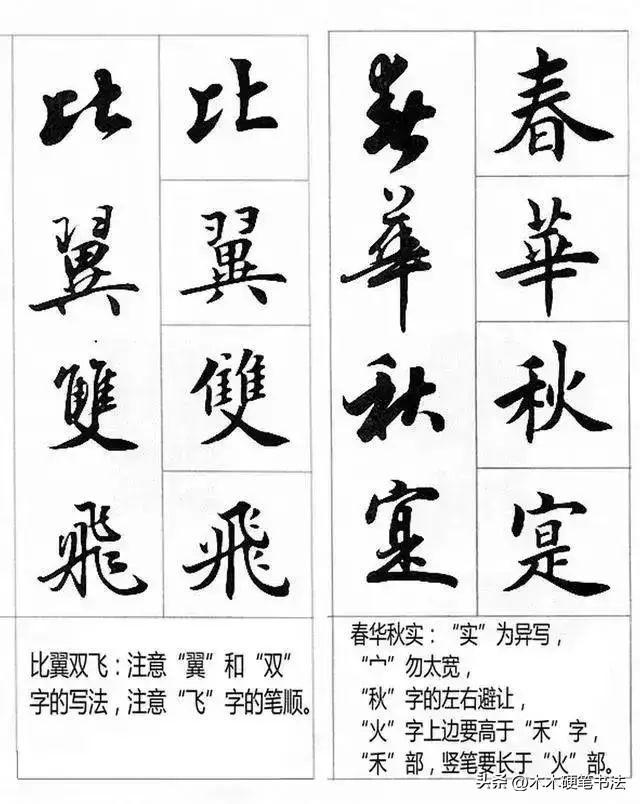 春華秋寔
春華秋寔
春华秋实：“实”为异写，
“宀”勿太宽，
“秋”字的左右避让，
“火”字上边要高于“禾”字，
“禾”部，竖笔要长于“火”部。
比翼雙飛
比翼雙飛
比翼双飞：注意“翼”和“双”
字的写法，注意“飞”字的笔顺。
头条@木木硬笔书法